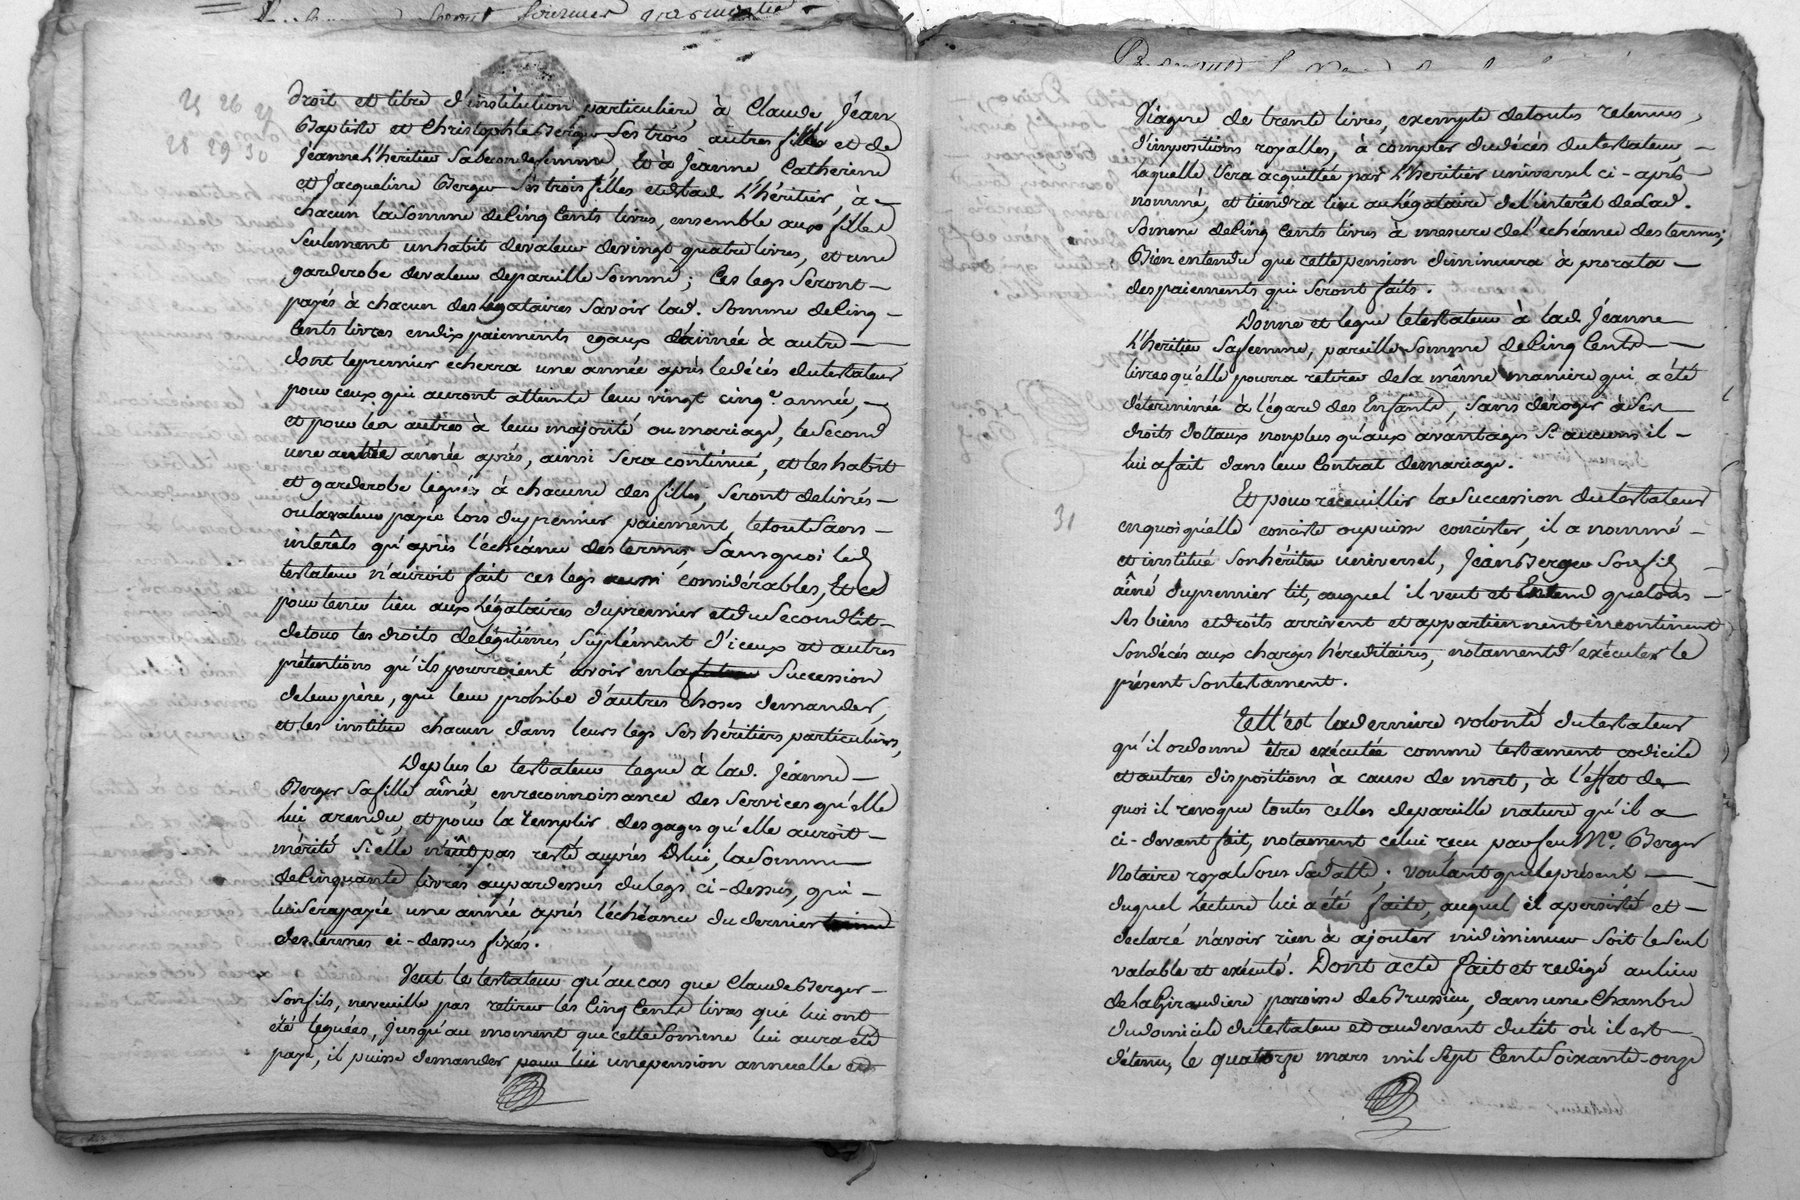 25 26 27
28 29 30
droit et titre d'institution particuliere, à Claude, Jean
Baptiste et Christophle Berger Ses trois autres fils et de
Jeanne L'héritier Sa seconde femme, Et à Jeanne Catherine
et Jacqueline Berger Ses trois filles et de lad. L'héritier, à
chacun la Somme de Cinq Cents livres, ensemble aux filles
Seulement un habit de valeur de vingt quatre livres, et une
garderobe de valeur de pareille Somme; Ces legs Seront
payés à chacun des légataires Savoir lad. Somme de Cinq
Cents livres en dix paiements egaux d'année à autre
dont le premier echerra une année après le décés du testateur
pour ceux qui auront atteint leur vingt cinq.e année,
et pour les autres à leur majorité ou mariage, le Second
une année après, ainsi Sera continué, et les habit
et garderobe legués à chacune des filles, Seront délivrés
ou la valeur payée lors du premier paiement, le tout Sans
interêts qu'après l'échéance des termes Sans quoi led
testateur n'auroit fait ces legs aussi considérables, Et ce
pour tenir lieu aux Légataires du premier et du Second lit
de tous les droits de légitimes, Suplément d'iceux et autres
prétentions qu'ils pourroient avoir en la Succession
de leur père, qui leur prohibe d'autres choses demander,
et les institue chacun dans leurs legs Ses héritiers particuliers,
De plus le testateur legue à lad. Jéanne
Berger Sa fille aînée, en reconnoissance des Services qu'elle
lui a rendu, et pour la remplir des gages qu'elle auroit
mérité Si elle n'eût pas resté auprès de lui, la Somme
de Cinquante livres au pardessus du legs ci-dessus, qui
lui Sera payée une année après l'échéance du dernier
des termes ci-dessus fixés.
Veut le testateur qu'au cas que Claude Berger
Son fils, ne veuille pas retirer les Cinq Cents livres qui lui ont
été leguées, jusqu'au moment que cette Somme lui aura été
payé, il puisse demander pour lui une pension annuelle et
Viagere de trente livres, exempte de toutes retenues,
d'impositions royalles, à compter du décés du testateur,
laquelle Sera acquittée par L'héritier universel ci-après
nommé, et tiendra lieu au légataire de l'intérêt de lad.
Somme de Cinq Cents livres à mesure de l'échéance des termes;
Bien entendu que cette pension diminuera à prorata
des paiements qui Seront faits.
Donne et legue le testateur à lad Jéanne
L'héritier Sa femme, pareille Somme de Cinq Cents
livres qu'elle pourra retirer de la même maniere qui a été
déterminée à l'égard des Enfants, Sans déroger à Ses
droits dottaux non plus qu'aux avantages Si aucuns il
lui a fait dans leur Contrat de mariage.
31
Et pour receuillir la Succession du testateur
en quoi qu'elle conciste ou puisse concister, il a nommé
et institué Son héritier universel, Jéan Berger Son fils
aîné du premier lit, auquel il veut et Entend que tous
Ses biens et droits arrivent et appartiennent incontinent
Son décés aux charges héréditaires, notament d'exécuter le
présent Son testament.
Telle est la derniere volonté du testateur
qu'il ordonne être exécutée comme testament codicile
et autres dispositions à cause de mort, à l'effet de
quoi il revoque toutes celles de pareille nature qu'il a
ci-devant fait, notament celui recu par feu M.e Berger
Notaire royal Sous Sa datte; voulant que le présent
duquel Lecture lui a été faite, auquel il a persisté et
declaré n'avoir rien à ajouter ni diminuer Soit le Seul
valable et exécuté. Dont acte fait et redigé au lieu
de la Giraudiere paroisse de Brussieu, dans une Chambre
du domicile du testateur et au devant du lit où il est
détenu, le quatorze mars mil Sept Cent Soixante-onze